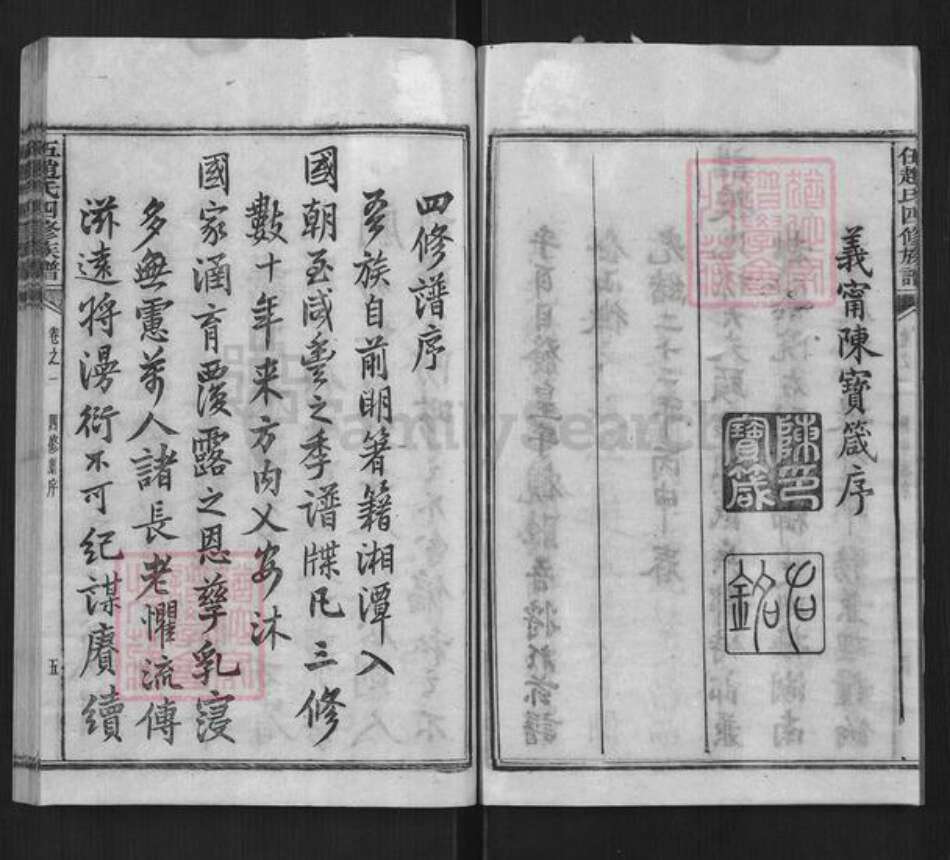 義甯陳寶箴序
陳印寶箴
四修譜序
吾族自前明著籍湘潭入
國朝至咸豐之季譜牒凡三修
數十年来方内乂安沐
國家涵育覆露之恩孳乳寖
多無慮萬人諸長老懼流傳
滋遠將漫衍不可紀謀賡續
五趙氏四修族譜
卷之一
四修譜序
五
FamilySearch